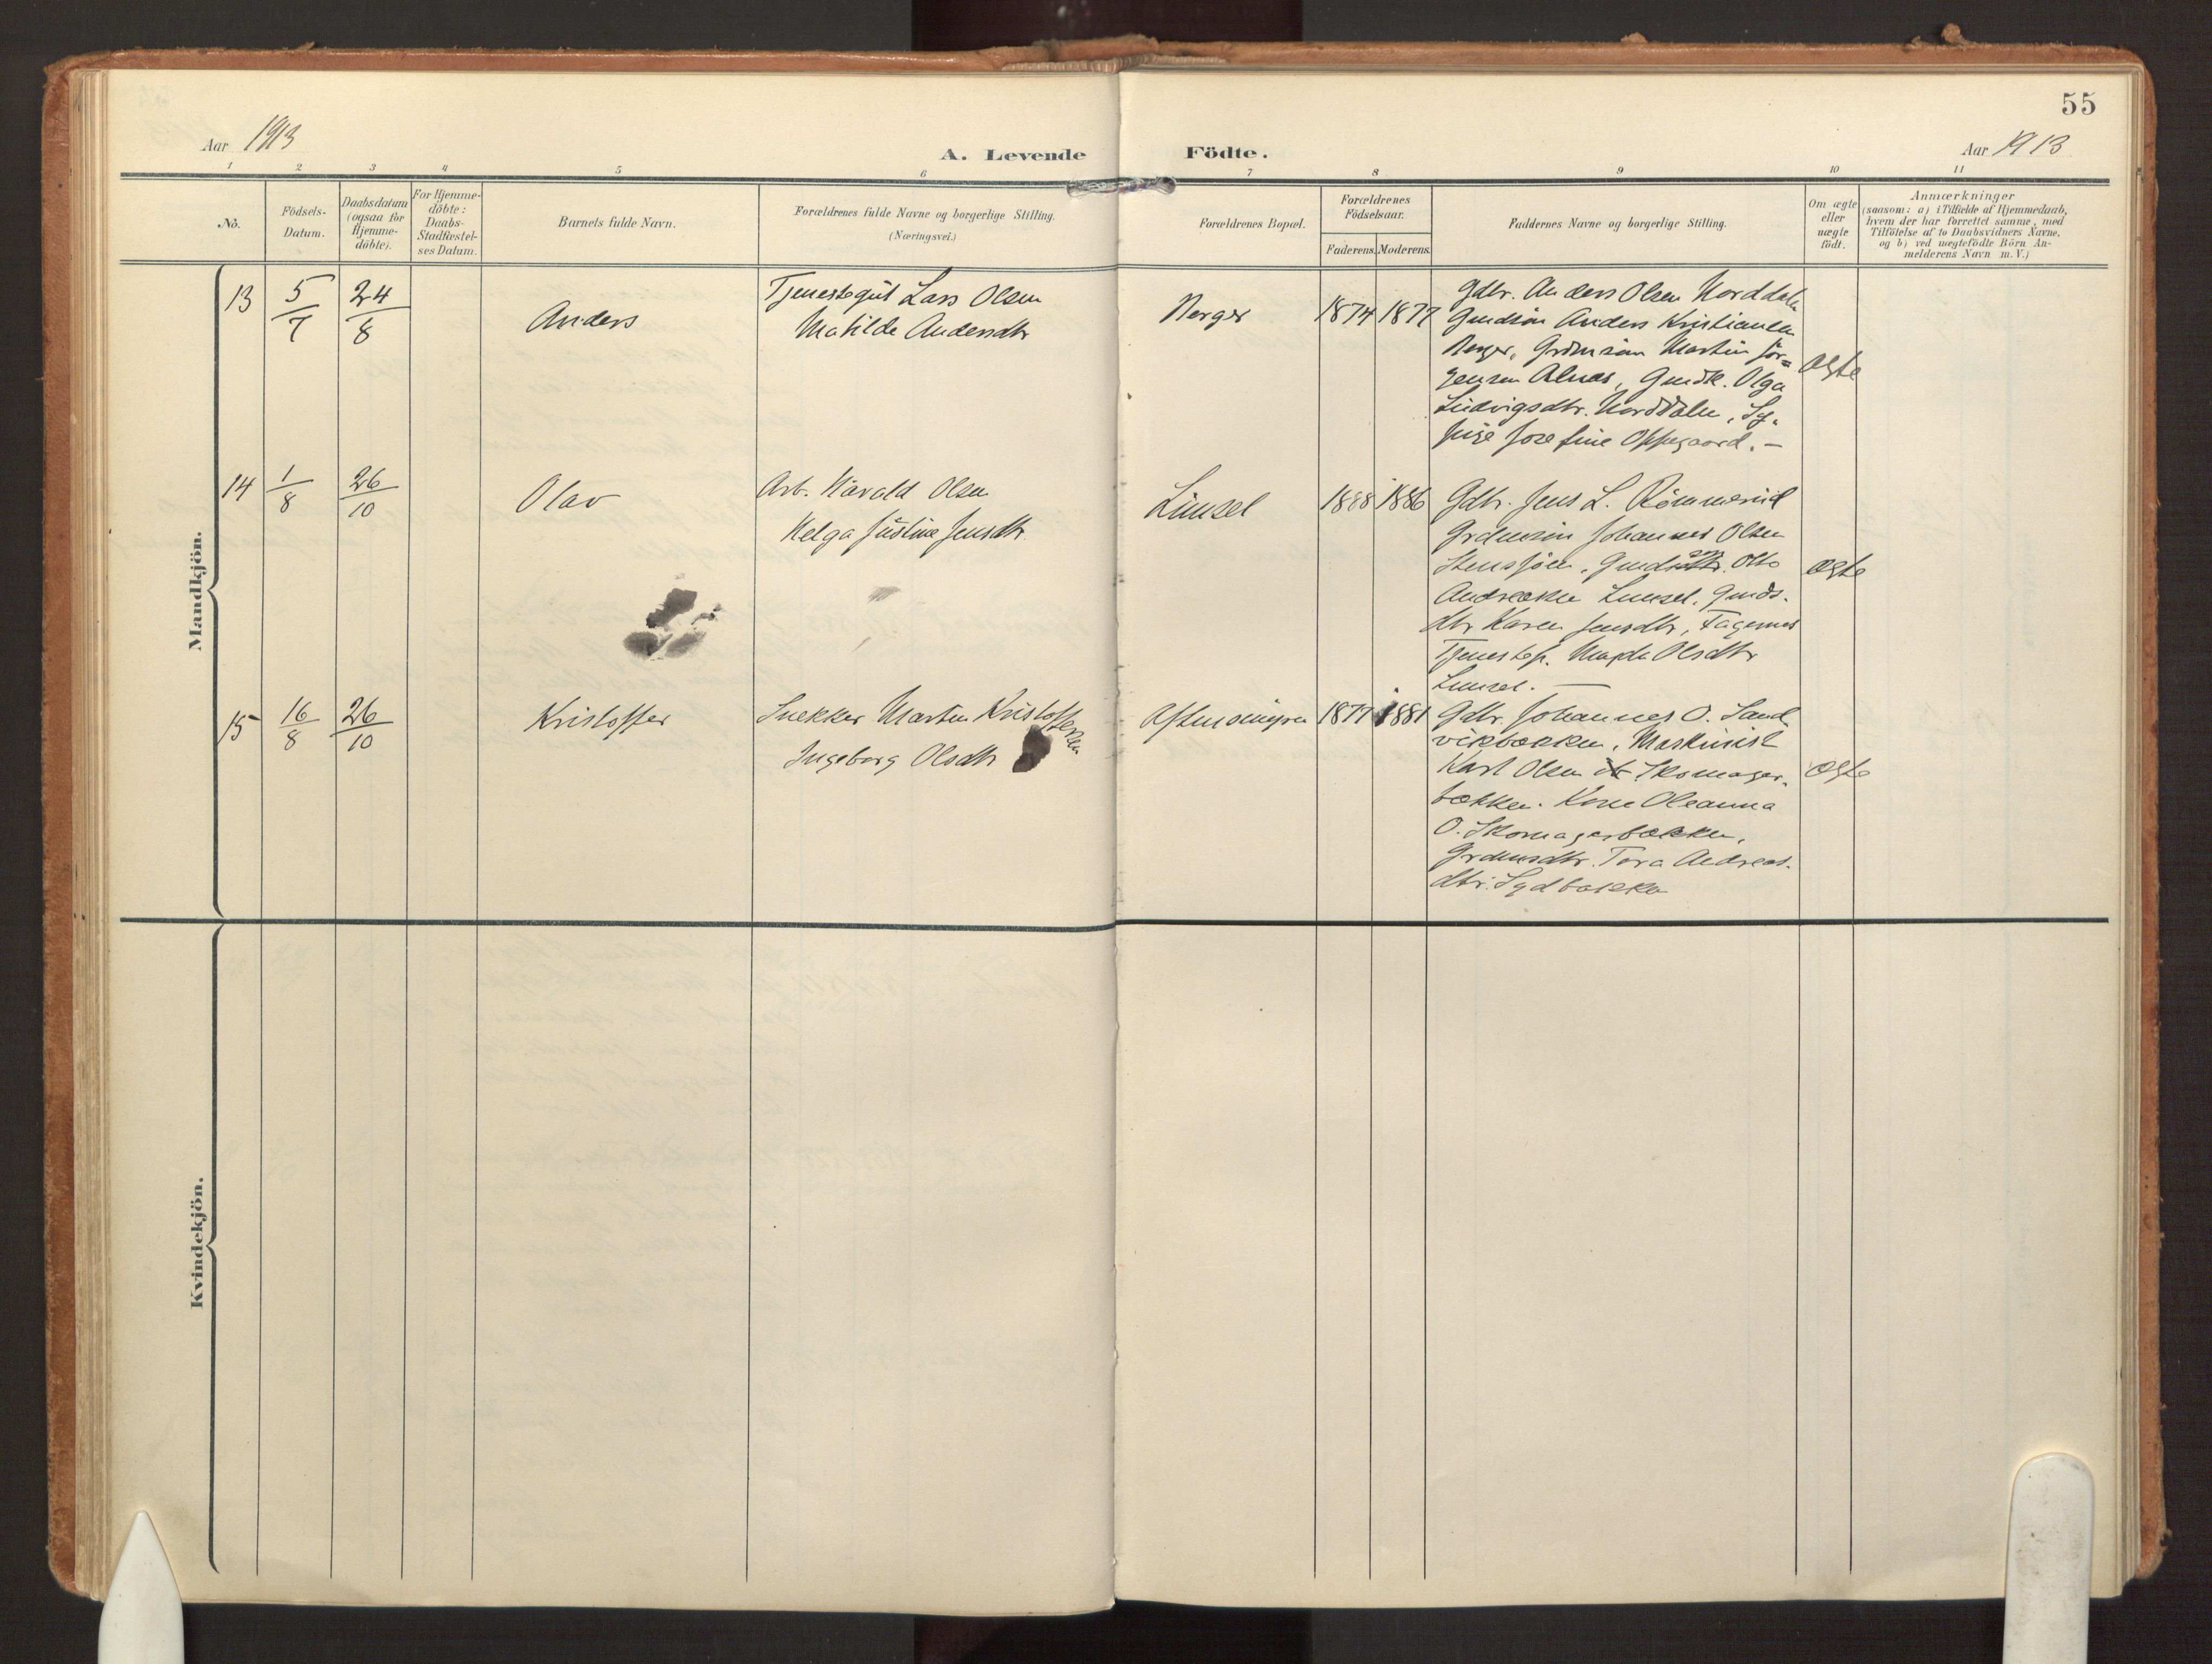 55
Aar 1913
A. Levende Födte.
Aar 1913
1 2 3 4 5 6 7 8 9 10 11
No.
Födsels-
Datum.
Daabsdatum
(ogsaa for
Hjemme-
döbte).
For Hjemme-
döbte:
Daabs-
Stadfæstel-
ses Datum.
Barnets fulde Navn.
Forældrenes fulde Navne og borgerlige Stilling.
(Næringsvei.)
Forældrenes Bopæl.
Forældrenes
Födselsaar.
Faderens. Moderens.
Faddernes Navne og borgerlige Stilling.
Om ægte
eller
uægte
födt.
Anmærkninger
(saasom: a) i Tilfælde af Hjemmedaab,
hvem der har forrettet samme, med
Tilföielse af to Daabsvidners Navne,
og b) ved uægtefödte Börn An-
melderens Navn m. V.)
Mandkjön.
13 5/7 24/8
Anders
Tjenestegut Lars Olsen
Matilde Andersdtr
Berger
1874 1877
Gdbr. Anders Olsen Norddalen
Anders Kristiansen
Berger, Martin Jör=
gensen Alnæs, Olga
Ludvigsdtr. Norddalen, Sy-
pige Josefine Oppegaard. —
ægte
14 1/8 26/10
Olav
Arb. Harald Olsen
Helga Justine Jensdtr.
Linsel
1888 1886
Gdbr. Jens L. Römmerud
Grdmsön Johannes Olsen
Stensjöen, Otto
Andreasen Linsel, Gmds.
dtr Karen Jensdtr, Fagernes
Tjenestep. Magda Olsdtr
Linsel. —
ægte
15 16/8 26/10
Kristoffer
Snekker Martin Kristoffersen
Ingeborg Olsdtr
1877 1881
Gdbr. Johannes O. Sand
vikbakken, Maskinist
Karl Olsen Skomager-
bakken. Kone Oleanna
O. Skomagerbakken,
Grdmsdtr. Tora Andreas-
dtr. Sydbakken
ægte
Kvindekjön.